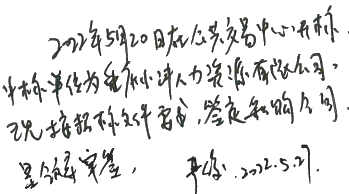 2022年5月20日在公共交易中心开标,
中标单位为重庆小冲人力资源有限公司,
现按招标文件要求,签定合同,
呈领导审签, 2022.5.27.